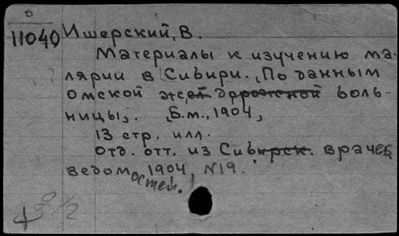 11040 Ишерский, В.
Материалы к изучению ма-
лярии в Сибири. По данным
омской жел дорожной боль-
ницы,. Б.м., 1904,
13 стр. илл.
Отд. отт. из Сибирск. врачеб
ведомостей. 1904, N19.